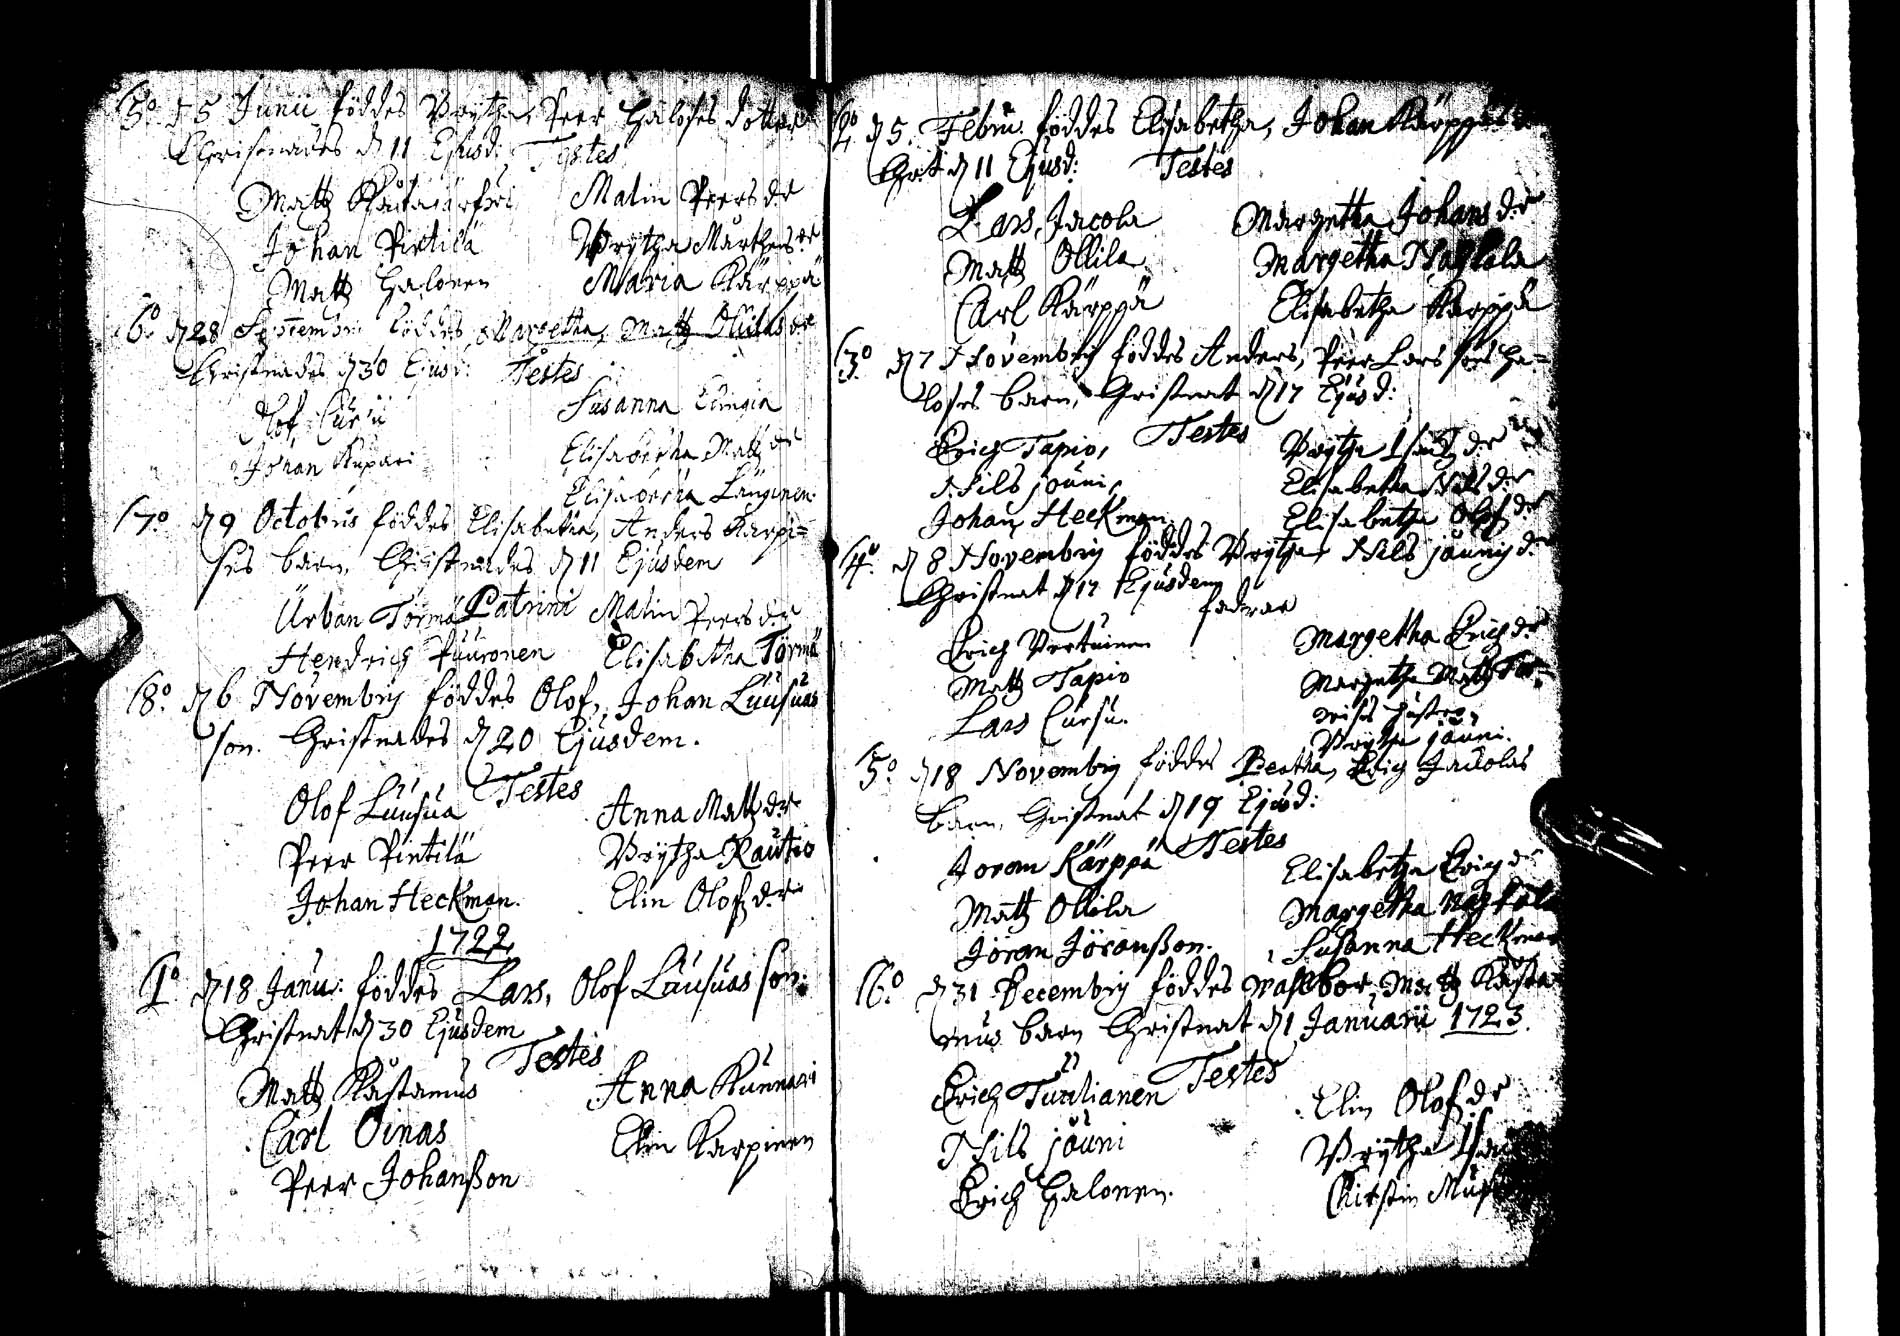 5º. d 5 Junii föddes Brÿtha, Peer Haloses dotter
Christnades d 11 Ejusd: Testes
Matz Malin Peers dr
Johan Pirtilä Brÿtha Mårthens dr
Matz Halonen Maria Kärppä
6º d 28 Septembri föddes Margetha, Matz Ollilas dr
Christnades d 30 Ejusd: Testes
Olof Cursu Susanna
Johan Kupari Elisabetha Matz dr
Elisabetha Länginen.
7º d 9 Octobris föddes Elisabetha, Anders Karpi=
ses barn, Christnades d 11 Ejusdem
Patrini
Urban Törmä Malin Peers dr
Hendrich Puuronen Elisabetha Törmä
8º. d 6 Novembrij föddes Olof, Johan Luusuas
son. Christnades d 20 Ejusdem.
Testes
Olof Luusua Anna Matz dr
Peer Pirtilä Brÿtha Rautio
Johan Heckman. Elin Olofz dr
1722
1º d 18 Janu: föddes Lars, Olof Luusuas son:
Christnat d 30 Ejusdem
Testes
Matz Kåstamus Anna Kunnari
Carl Oinas Elin Karpinen
Peer Johanßon
2º d 5. Febru: föddes Elisabetha, Johan Kärppäs
Chri:t d 11 Ejusd: Testes
Lars Jacola Margetha Johans dr
Matz Ollila Margetha
Carl Kärppä Elisabetha Karppä
3º. d 7 Novembrij föddes Anders, Peer Lars sons Ha=
loses barn, Christnat d 17 Ejusd:
Testes
Erich Tapio, Brÿtha Isachz dr
Nils jouni, Elisabetha Nils dr
Johan Heckman Elisabetha Olofz dr
4º. d 8 Novembrij föddes Brÿtha, Nils jounis dr
Christnat d 17 Ejusdem
fadrar
Erich Margetha Erichz dr
Matz Tapio Margetha Matz
Lars Cursu. hustro,
Brÿtha jouni.
5º d 18 Novembrij föddes Beatha, Erich Jacolas
barn, Christnat d 19 Ejusd:
Testes
Joran Kärppä Elisabetha Erichz dr
Matz Ollila Margetha
Jöran Jöranßon. Susanna Heckman
6º. d 31 Decembrij föddes Walbor, Matz Kåsta
mus barn Christnat d 1 Januarii 1723.
Testes
Erich Turtianen Elin Olofz dr
Nils jouni Brÿtha
Erich Halonen. Chirstin